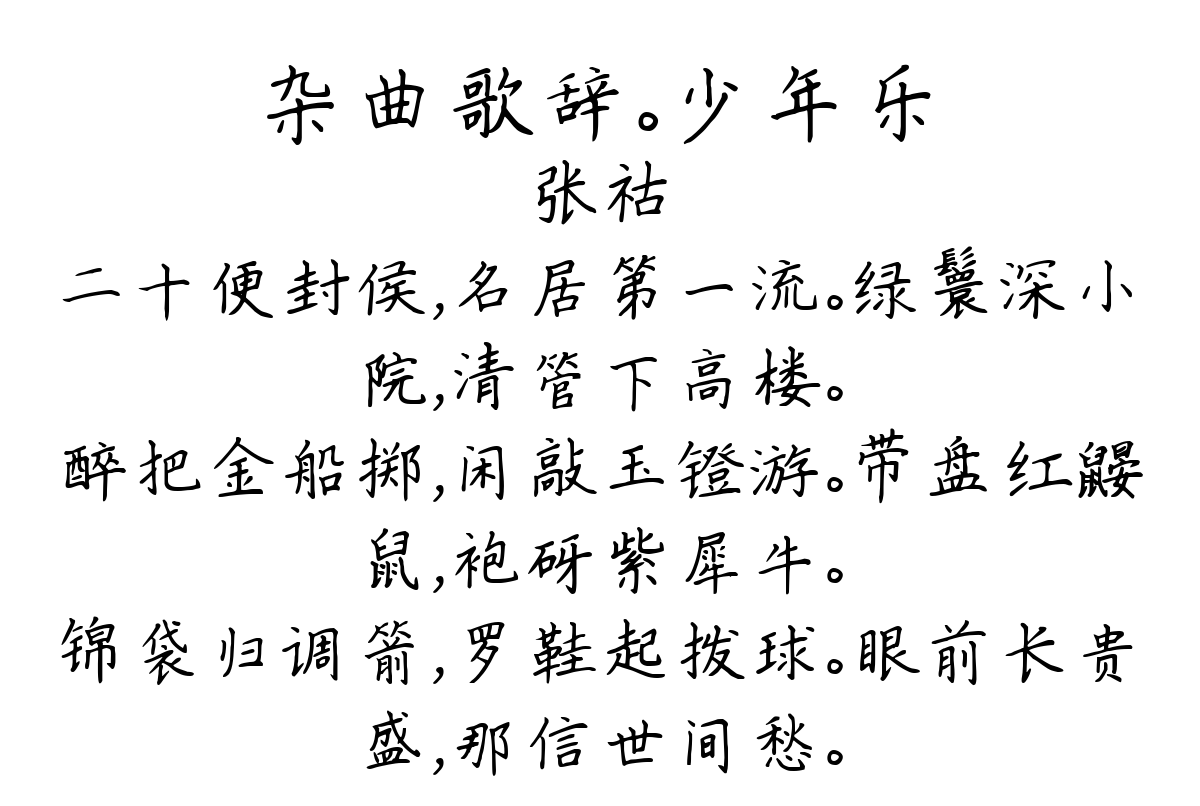 杂曲歌辞。少年乐
张祜
二十便封侯,名居第一流。绿鬟深小
院,清管下高楼。
醉把金船掷,闲敲玉镫游。带盘红鼹
鼠,袍砑紫犀牛。
锦袋归调箭,罗鞋起拨球。眼前长贵
盛,那信世间愁。